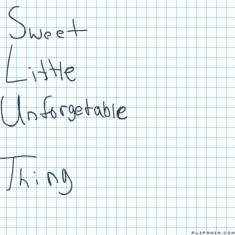 Sweet
Little
Unforgetable
Thing
FLIPANIM.COM